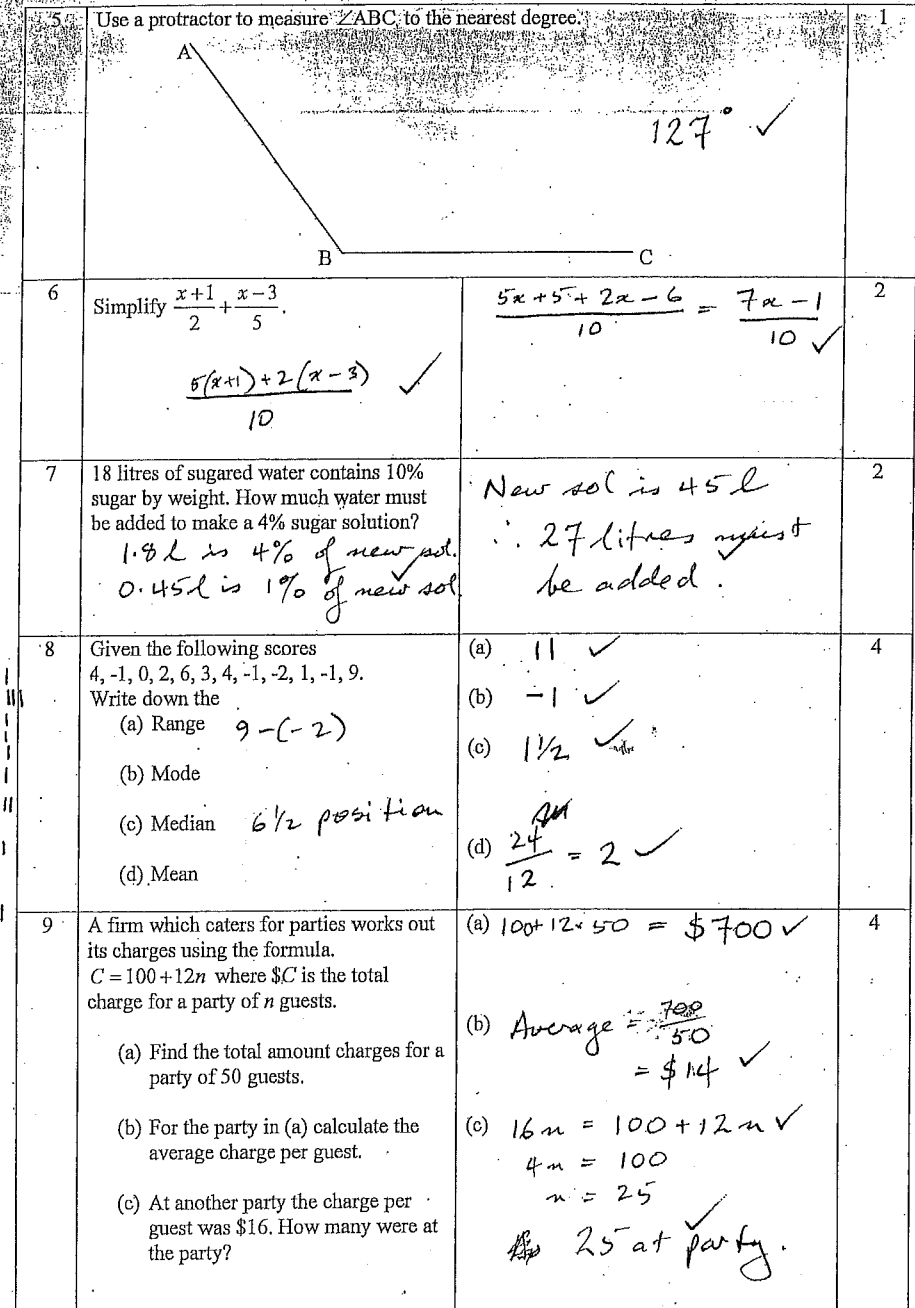 5 Use a protractor to measure ∠ABC, to the nearest degree. 1
A
127° ✓
B C
6 Simplify (x+1)/2 + (x−3)/5. 2
5(x+1)+2(x−3) ✓
10
(5x+5+2x−6)/10 = (7x−1)/10 ✓
7 18 litres of sugared water contains 10% 2
sugar by weight. How much water must
be added to make a 4% sugar solution?
1.8l is 4% of new sol.
0.45l is 1% of new sol ✓
New sol is 45l
∴ 27 litres must
be added. ✓
8 Given the following scores 4
4, -1, 0, 2, 6, 3, 4, -1, -2, 1, -1, 9.
Write down the
(a) Range 9-(-2)
(b) Mode
(c) Median 6½ position
(d) Mean
(a) 11 ✓
(b) -1 ✓
(c) 1½ ✓
(d) 24/12 = 2 ✓
9 A firm which caters for parties works out 4
its charges using the formula.
C = 100+12n where $C is the total
charge for a party of n guests.
(a) Find the total amount charges for a
party of 50 guests.
(b) For the party in (a) calculate the
average charge per guest.
(c) At another party the charge per
guest was $16. How many were at
the party?
(a) 100+12×50 = $700 ✓
(b) Average = 700/50
= $14 ✓
(c) 16n = 100+12n ✓
4n = 100
n = 25
25 at party. ✓